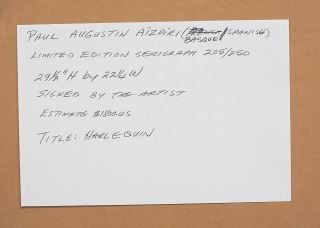 PAUL AUGUSTIN AÏZPIRI (BASQUE/SPANISH)
LIMITED EDITION SERIGRAPH 205/250
29½" H by 22¼ W
SIGNED BY THE ARTIST
ESTIMATE $1800US
TITLE: HARLEQUIN